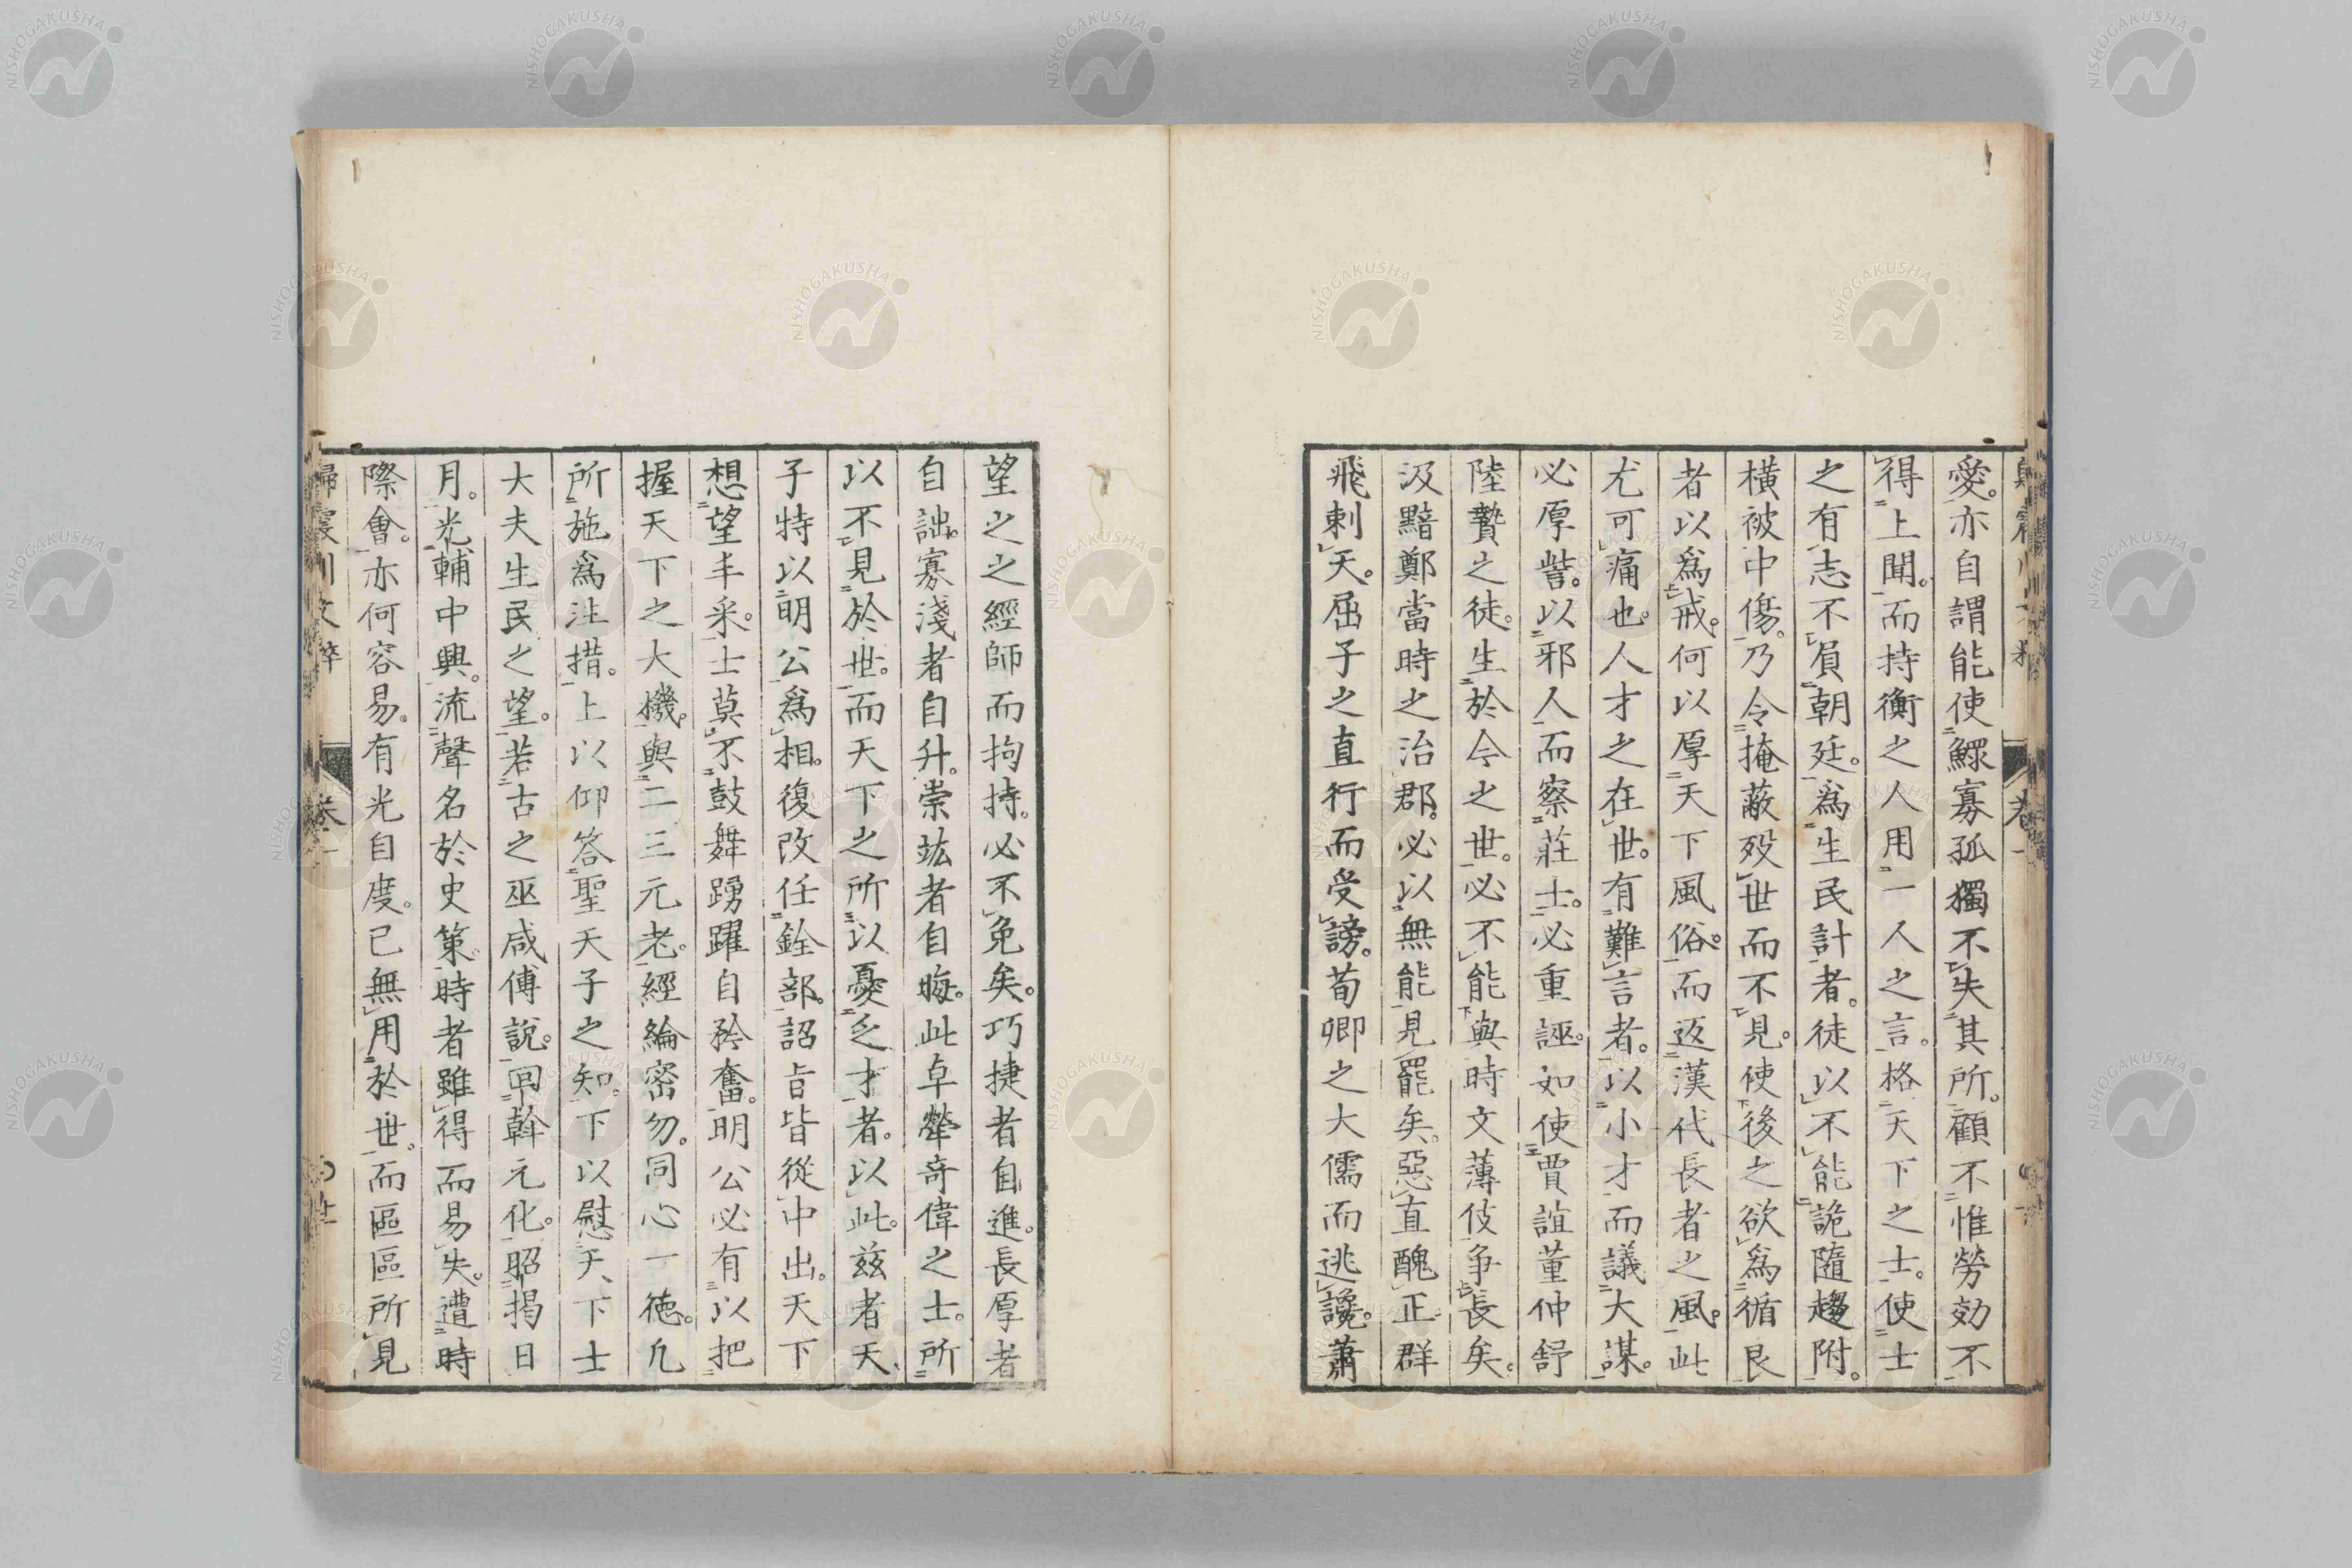 愛。亦自謂能使鰥寡孤獨不失其所。顧不惟勞効不
得上聞。而持衡之人用一人之言。格天下之士。使士
之有志不負朝廷。爲生民計者。徒以不能詭隨趨附。
橫被中傷。乃令掩蔽歿世而不見。使後之欲爲循良
者以爲戒。何以厚天下風俗。而返漢代長者之風。此
尤可痛也。人才之在世。有難言者。以小才而議大謀。
必厚訾。以邪人而察莊士。必重誣。如使賈誼董仲舒
陸贄之徒。生於今之世。必不能與時文薄伎爭長矣。
汲黯鄭當時之治郡。必以無能見罷矣。惡直醜正。群
飛刺天。屈子之直行而受謗。荀卿之大儒而逃讒。蕭
望之之經師而拘持。必不免矣。巧捷者自進。長厚者
自詘。寡淺者自升。崇竑者自晦。此卓犖奇偉之士。所
以不見於世。而天下之所以憂乏才者。以此。茲者天
子特以明公爲相。復改任銓部。詔旨皆從中出。天下
想望丰采。士莫不鼓舞踴躍自矜奮。明公必有以把
握天下之大機。與二三元老。經綸密勿。同心一德。凡
所施爲注措。上以仰答聖天子之知。下以慰天下士
大夫生民之望。若古之巫咸傅說。回斡元化。昭揭日
月。光輔中興。流聲名於史策。時者雖得而易失。遭時
際會。亦何容易。有光自度。已無用於世。而區區所見
歸震川文粹 卷一
NISHOGAKUSHA